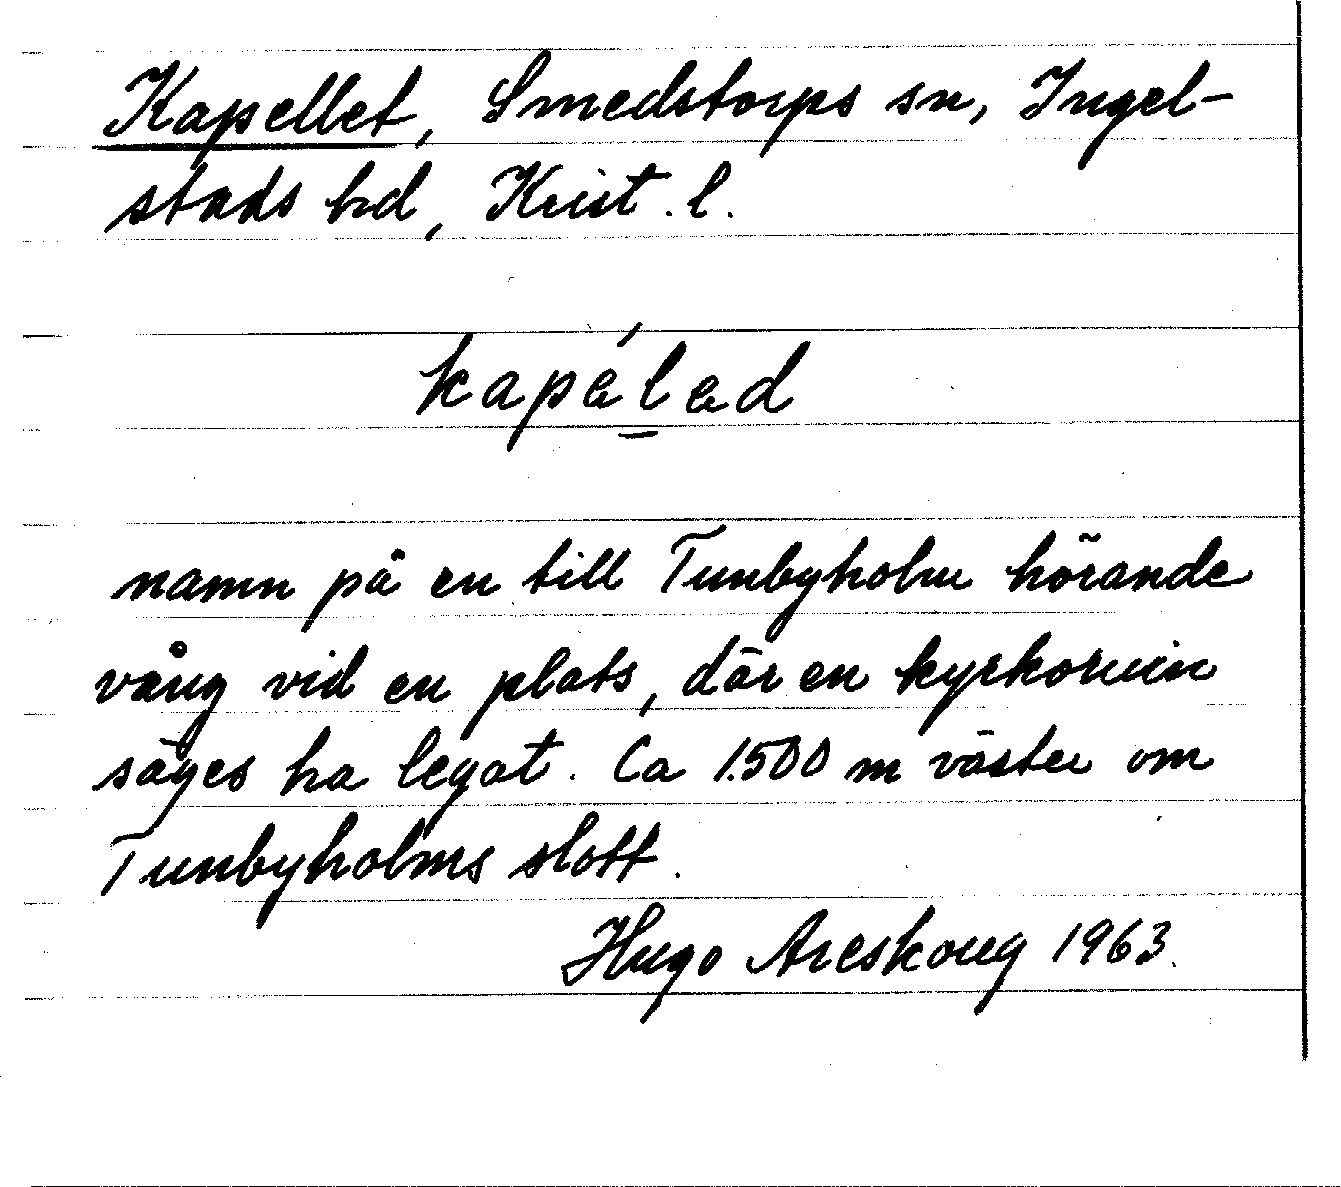 Kapellet, Smedstorps sn, Ingel-
stads hd, Krist. l.
kapæ´l̲æd
namn på en till Tunbyholm hörande
vång vid en plats, där en kyrkoruin
säges ha legat. Ca 1500 m väster om
Tunbyholms slott.
Hugo Areskoug 1963.